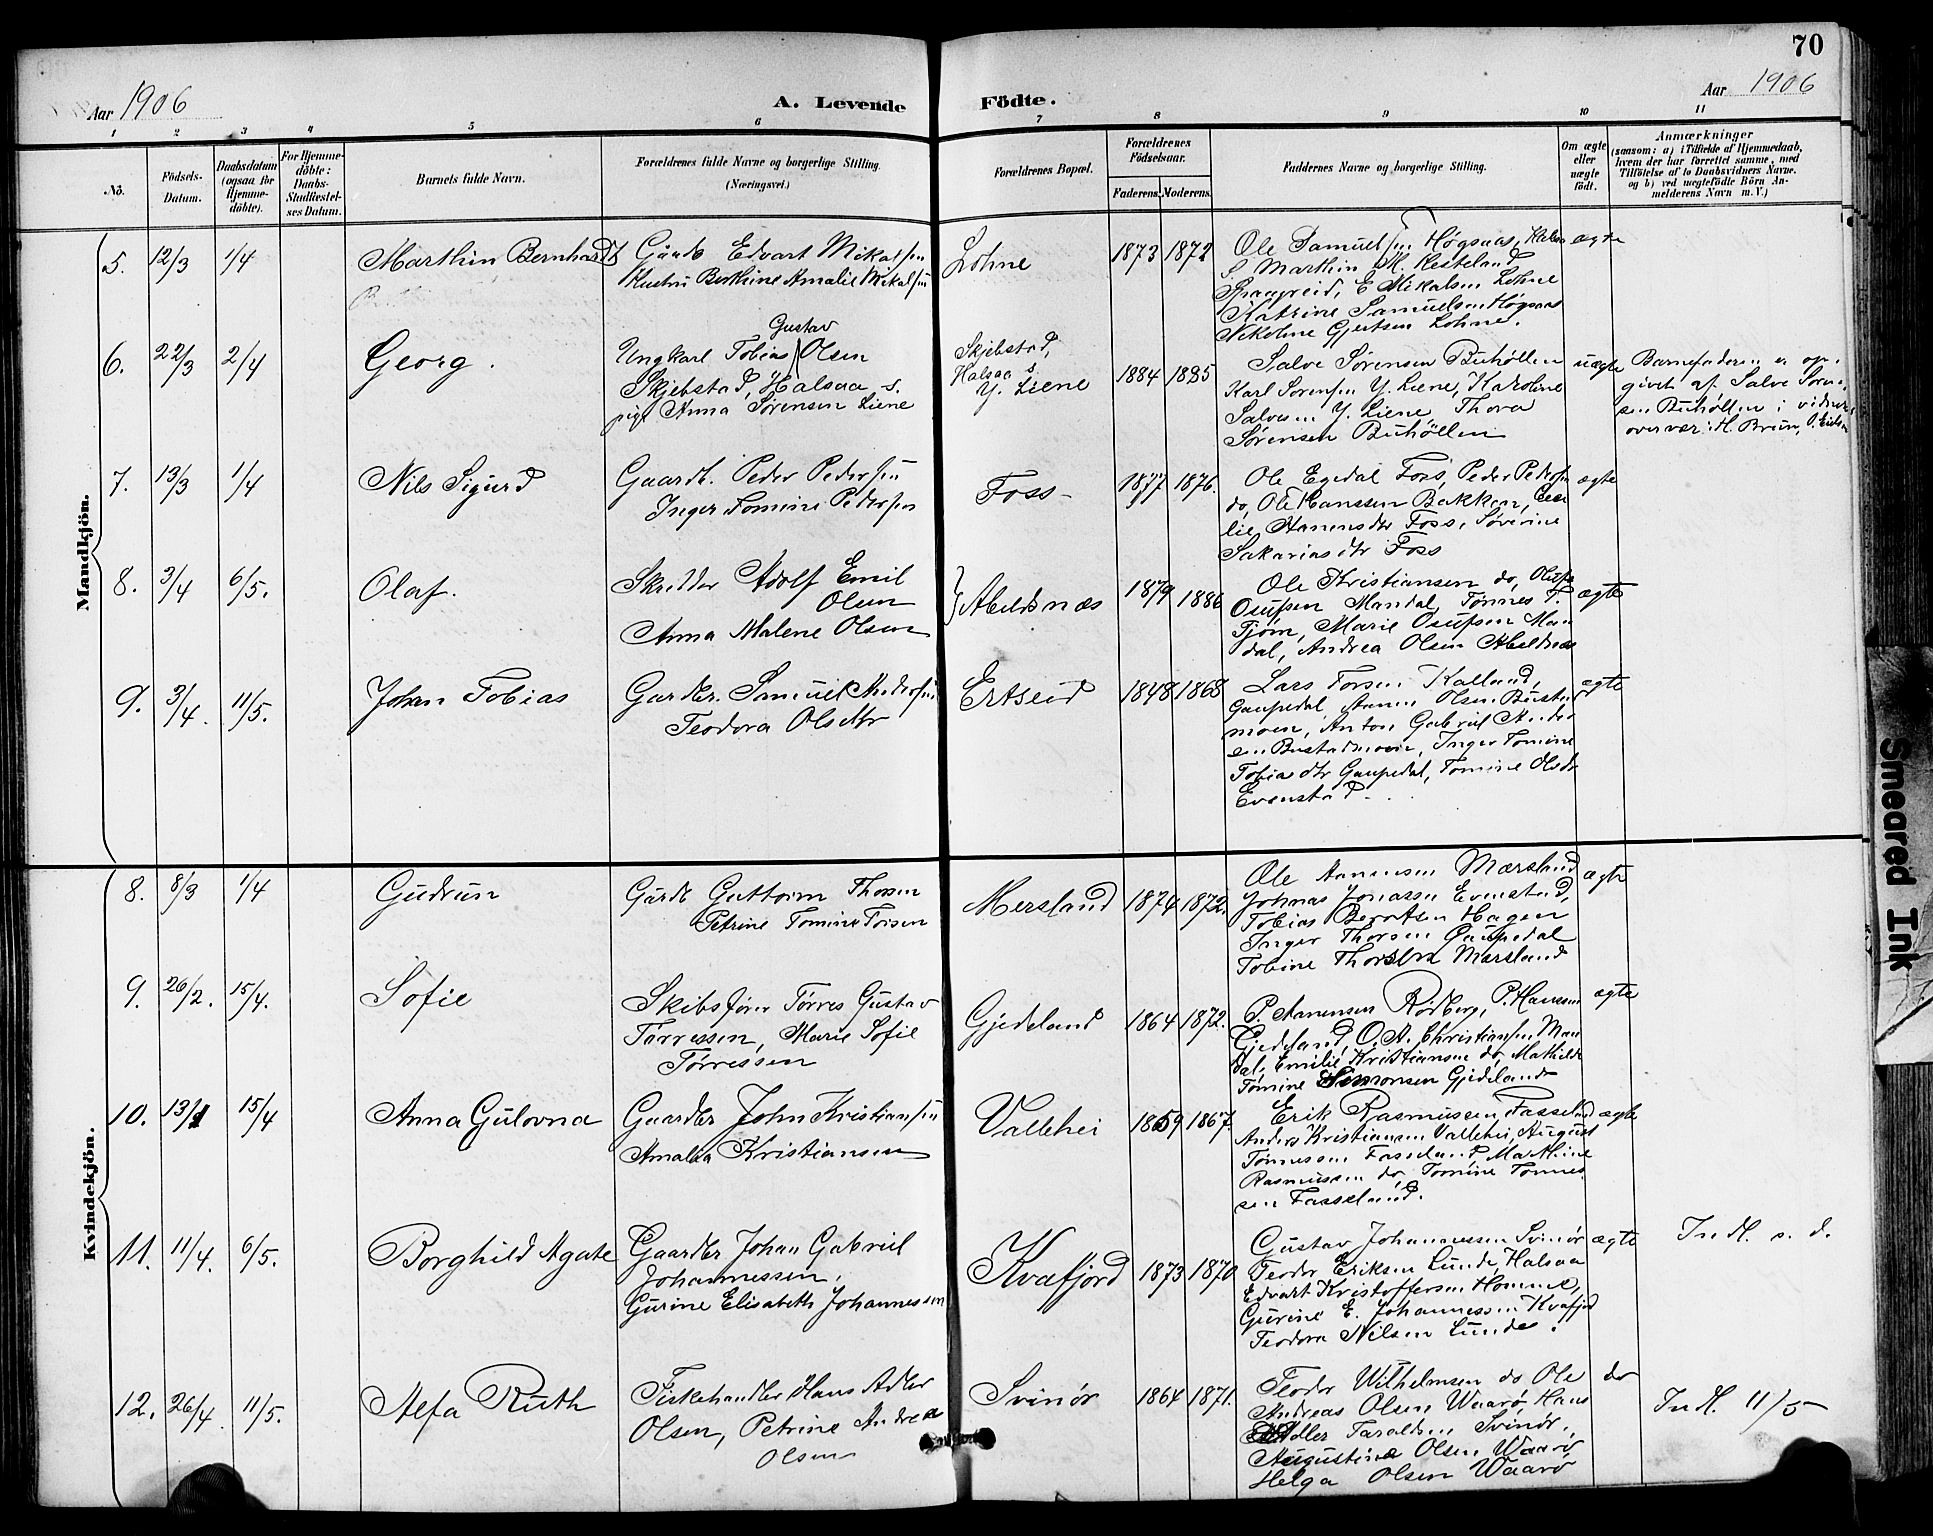 70
Aar 1906
A. Levende Födte.
Aar 1906
1 2 3 4 5 6 7 8 9 10 11
No.
Födsels-Datum.
Daabsdatum (ogsaa for Hjemme-döbte).
For Hjemme-döbte: Daabs-Stadfæstel-ses Datum.
Barnets fulde Navn.
Forældrenes fulde Navne og borgerlige Stilling.
(Næringsvei.)
Forældrenes Bopæl.
Forældrenes Födselsaar.
Faderens. Moderens.
Faddernes Navne og borgerlige Stilling.
Om ægte eller uægte födt.
Anmærkninger
(saasom: a) i Tilfælde af Hjemmedaab,
hvem der har forrettet samme, med
Tilföielse af to Daabsvidners Navne,
og b) ved uægtefödte Börn An-
melderens Navn m. V.)
Mandkjön.
5. 12/3 1/4 Marthin Bernhardt
Gårdb Edvart Mikalsen
Hustru Berthine Amalie Mikalsen
Lohne 1873 1872
Ole Samuelsen Høgsaas, Halsaa
S. Marthin M. Kesteland
Spangereid, E Mikalsen Lohne
Katrine Samuelsen Høgsaas
Nikoline Gjertsen Lohne.
ægte
6. 22/3 2/4 Georg.
Gustav
Ungkarl Tobias Olsen
Skjebstad, Halsaa s.
pige Anna Sørensen Liene
Skjebstad,
Halsaa s.
Y. Liene
1884 1885
Salve Sørensen Buhøllen
Karl Sørensen Y. Liene, Karoline
Salvesen Y. Liene, Thora
Sørensen Buhøllen
uægte
Barnefaderen er op-
givet af Salve Søren-
sen Buhöllen i vidners
overvær: H. Bruun,
7. 13/3 1/4 Nils Sigurd
Gaardb. Peder Pedersen
Inger Tomine Pedersen
Foss 1877 1876.
Ole Egedal Foss, Peder Pedersen
do, Ole Hanssen Bakken, Ceci
lie Hanensdtr Foss, Søverine
Sakariasdtr Foss
ægte
8. 3/4 6/5. Olaf.
Skrædder Adolf Emil
Olsen
Anna Malene Olsen
Abelsnæs 1879 1886
Ole Kristiansen do,
Osufsen Mandal, Tønnes T.
Tjøm, Marie Osufsen Man
dal, Andrea Olsen Abelsnæs
ægte
9. 3/4. 11/5. Johan Tobias
Gardbr. Samuel Andersen
Teodora Olsdtr
Ertseid 1848 1868
Lars Torsen Kalland,
Gaupedal, Anna Olsen Bustad
moen, Anton Gabriel Ander
sen Bustadmoen, Inger Tomine
Tobiasdtr Gaupedal, Tomine Olsdr
Evenstad.
ægte
Kvindekjön.
8. 8/3 1/4 Gudrun
Gårdb Guttorm Thorsen
Petrine Tomine Torsen
Mersland 1874 1872.
Ole Aanensen Mærsland
Johnas Jonassen Evenstad,
Tobias Berntsen Hagen
Inger Thorsen Gaupedal
Tobine Thorsen Mærsland
ægte
9. 26/2. 15/4. Sofie
Skibsfører Tørres Gustav
Tørressen, Marie Sofie
Tørressen
Gjedeland 1864 1872.
P. Aanensen Rødberg, P. Hanssen
Gjedeland, O. A. Christiansen Man
dal, Emilie Kristiansen do, Mathilde
Tomine Simonsen Gjedeland
ægte
10. 13/1 15/4 Anna Gulovna
Gaardbr John Kristiansen
Amalia Kristiansen
Vallehei 1859 1867.
Erik Rasmussen, Fasseland
Anders Kristiansen Vallehei, August
Tønnessen Fasseland, Mathine
Rasmussen do, Tomine Tønnes
sen Fasseland.
ægte
11. 11/4. 6/5. Borghild Agate
Gaardbr Johan Gabriel
Johannessen,
Gurine Elisabeth Johannessen
Kvafjord 1873 1870
Gustav Johannessen Svinør
Teodor Eriksen Lunde, Halsaa
Edvart Kristoffersen Homme,
Gurine E. Johannessen Kvafjord
Teodora Nilsen Lunde.
ægte
Indl. s. d.
12. 26/4. 11/5. Alfa Ruth
Fiskehandler Hans Adler
Olsen, Petrine Andrea
Olsen
Svinør 1864 1871.
Teodor Wilhelmsen do Ole
Andreas Olsen Waarø, Hans
Adler Taraldsen Svinør,
Augustine Olsen Waarø
Helga Olsen Waarø
do
Indl. 11/5
Smeared Ink